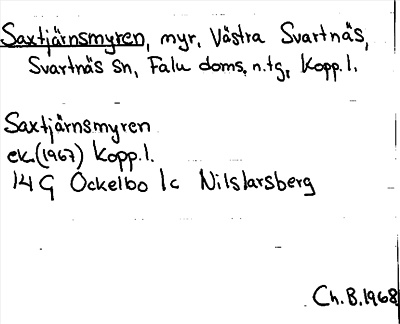 Saxtjärnsmyren, myr, Västra Svartnäs,
Svartnäs sn, Falu doms. n. tg, Kopp. l.
Saxtjärnsmyren
ek. (1967) Kopp. l.
14 G Ockelbo 1c Nilslarsberg
Ch. B. 1968